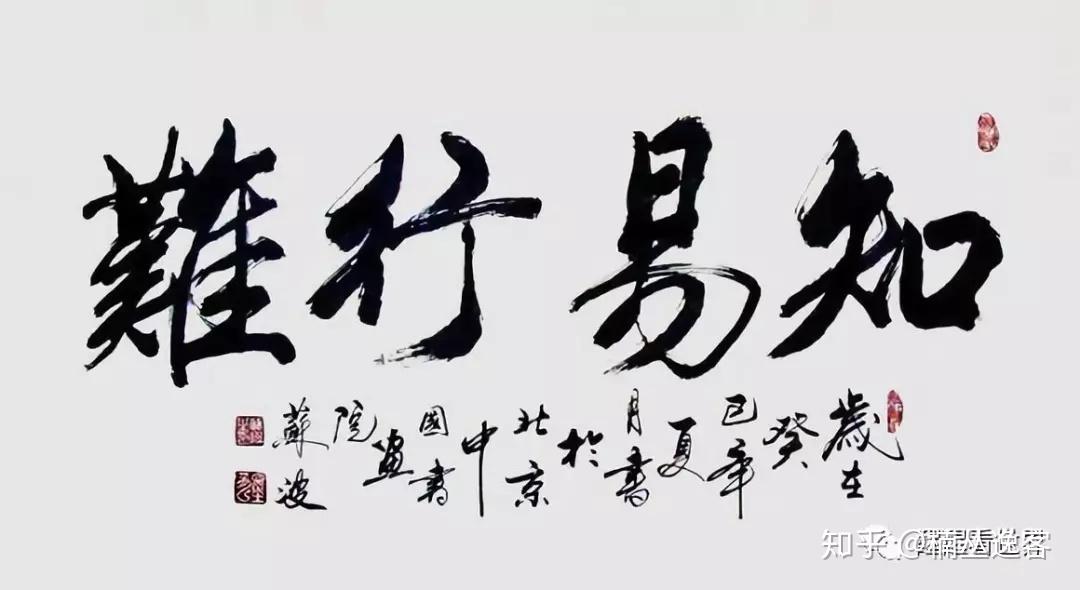 知易行難
歲在
癸
巳年
夏
月書
於
北京
中
國書
畫
院
蘇波
知乎